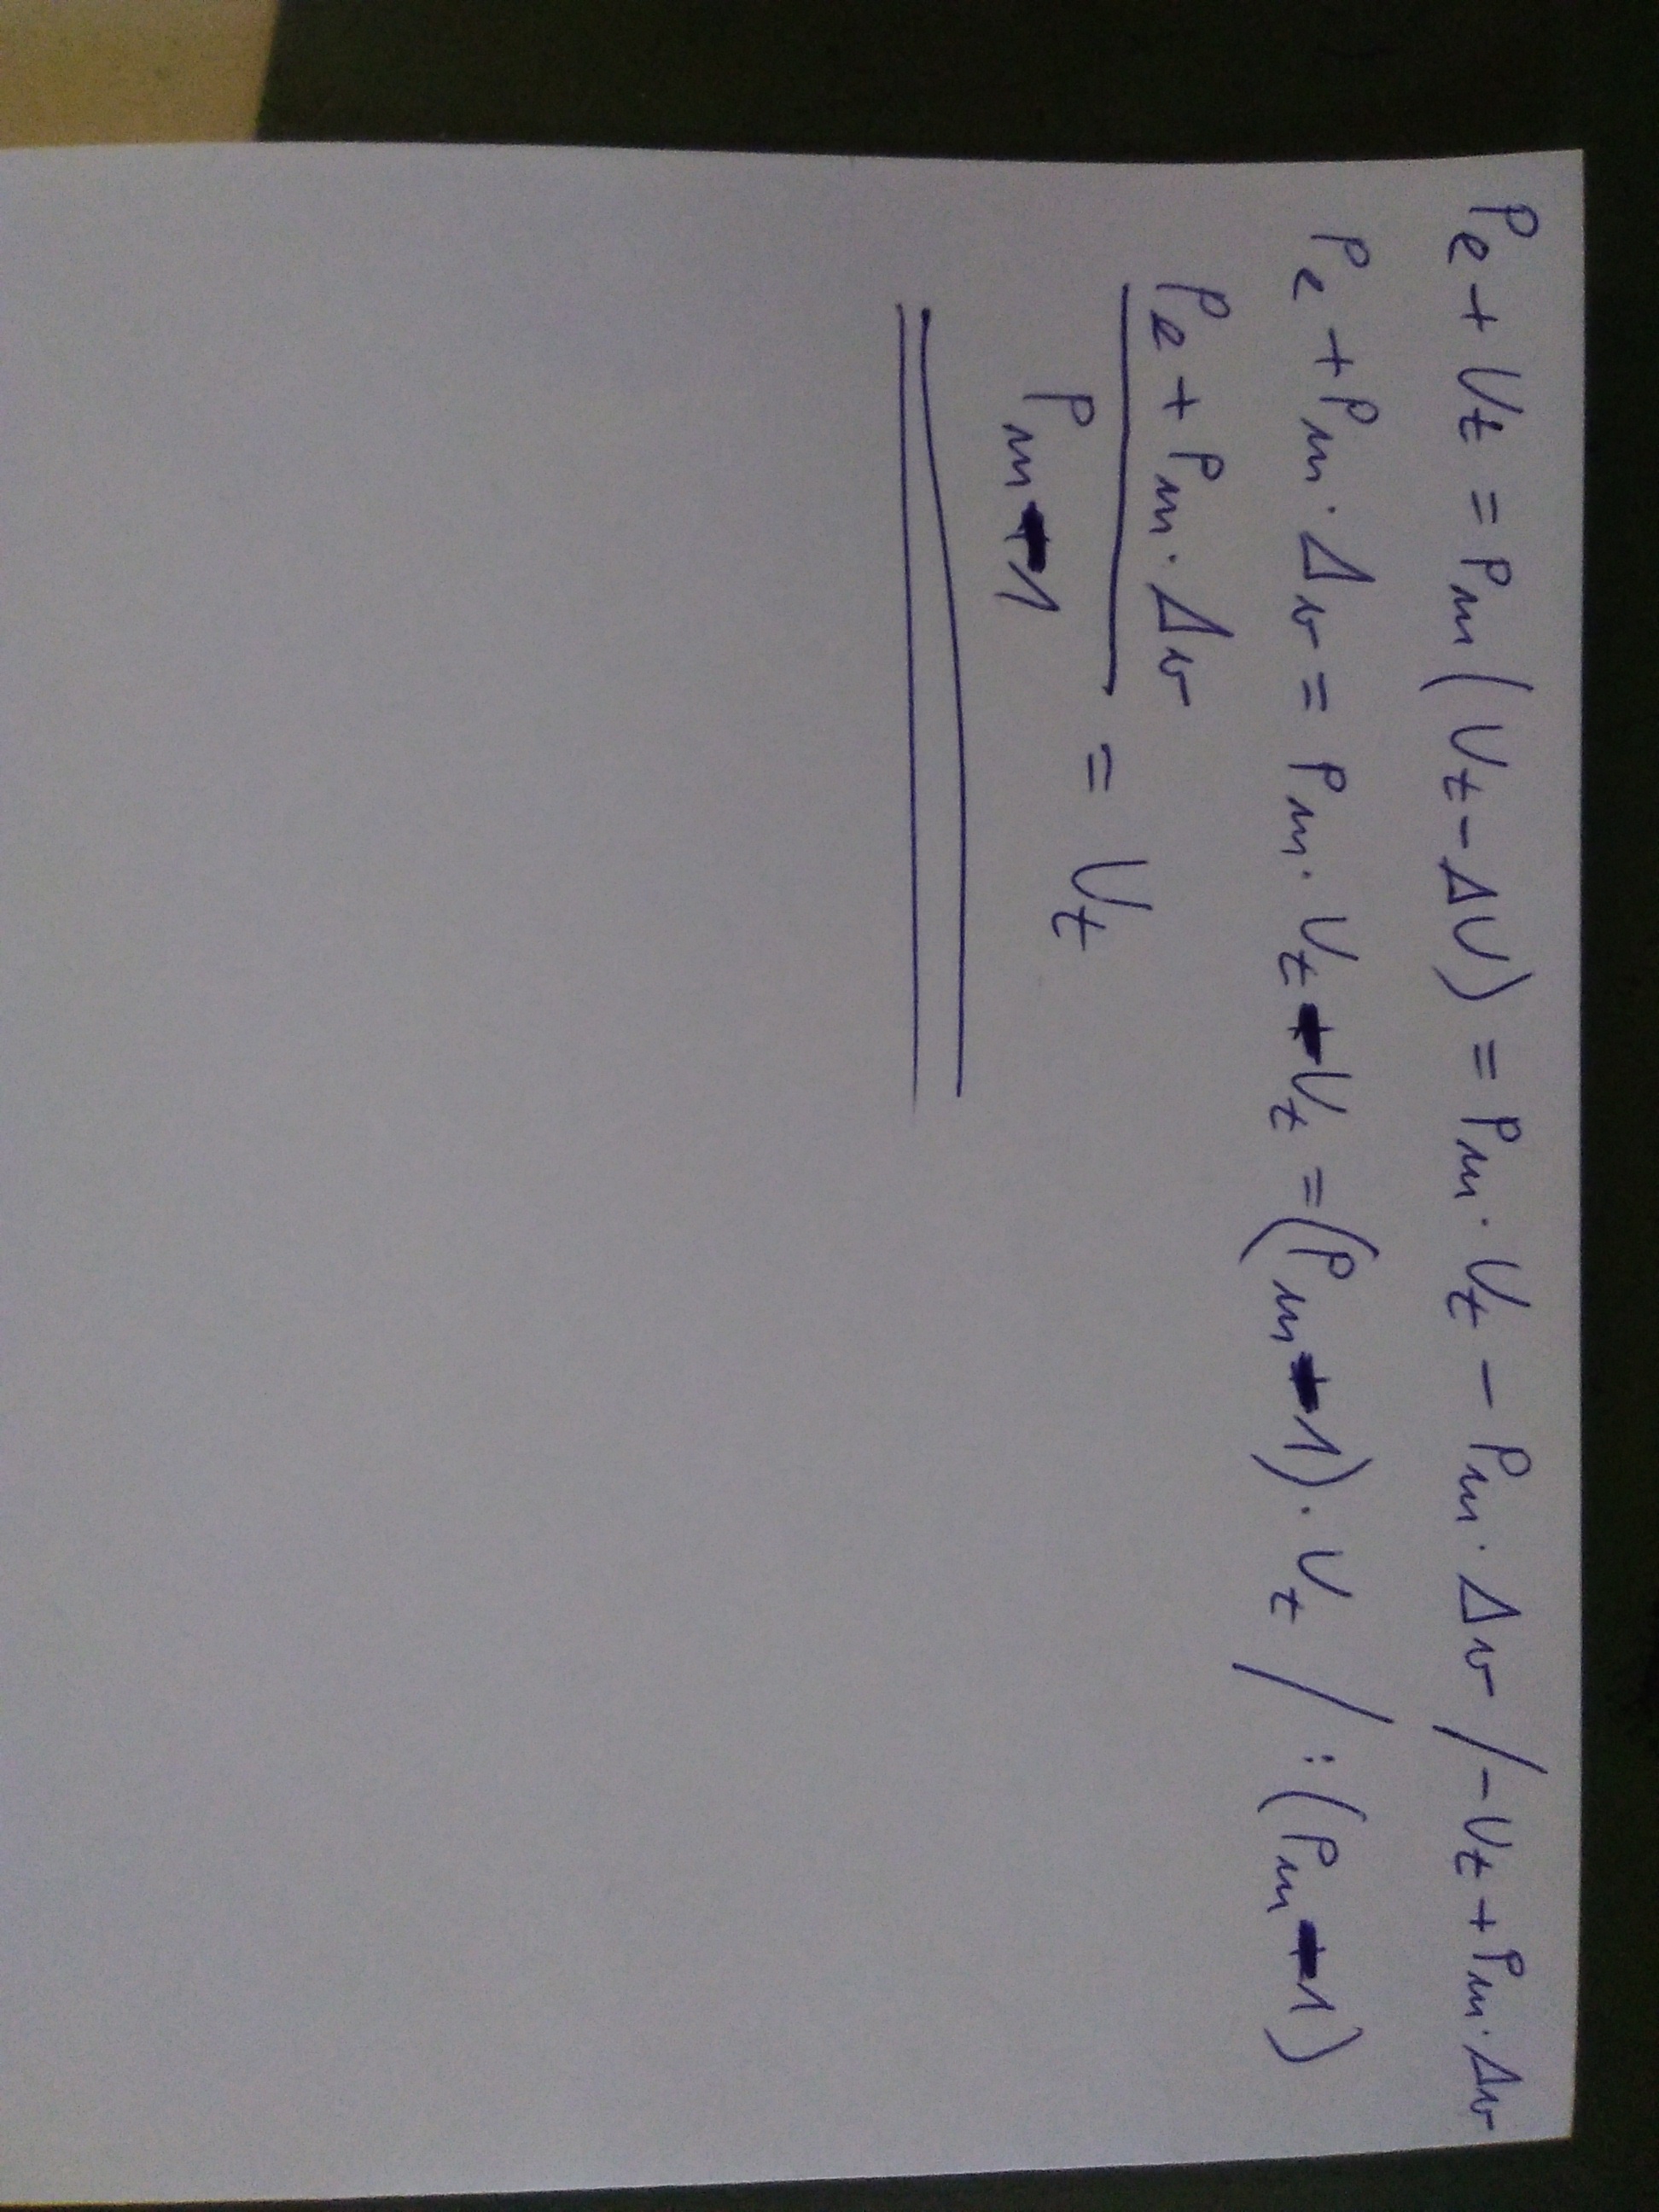 Pe + Vt = Pm (Vt - ΔV) = Pm · Vt - Pm · Δv / - Vt + Pm · Δv
Pe + Pm · Δv = Pm · Vt - Vt = (Pm - 1) · Vt / : (Pm - 1)
Pe + Pm · Δv
Pm - 1
= Vt